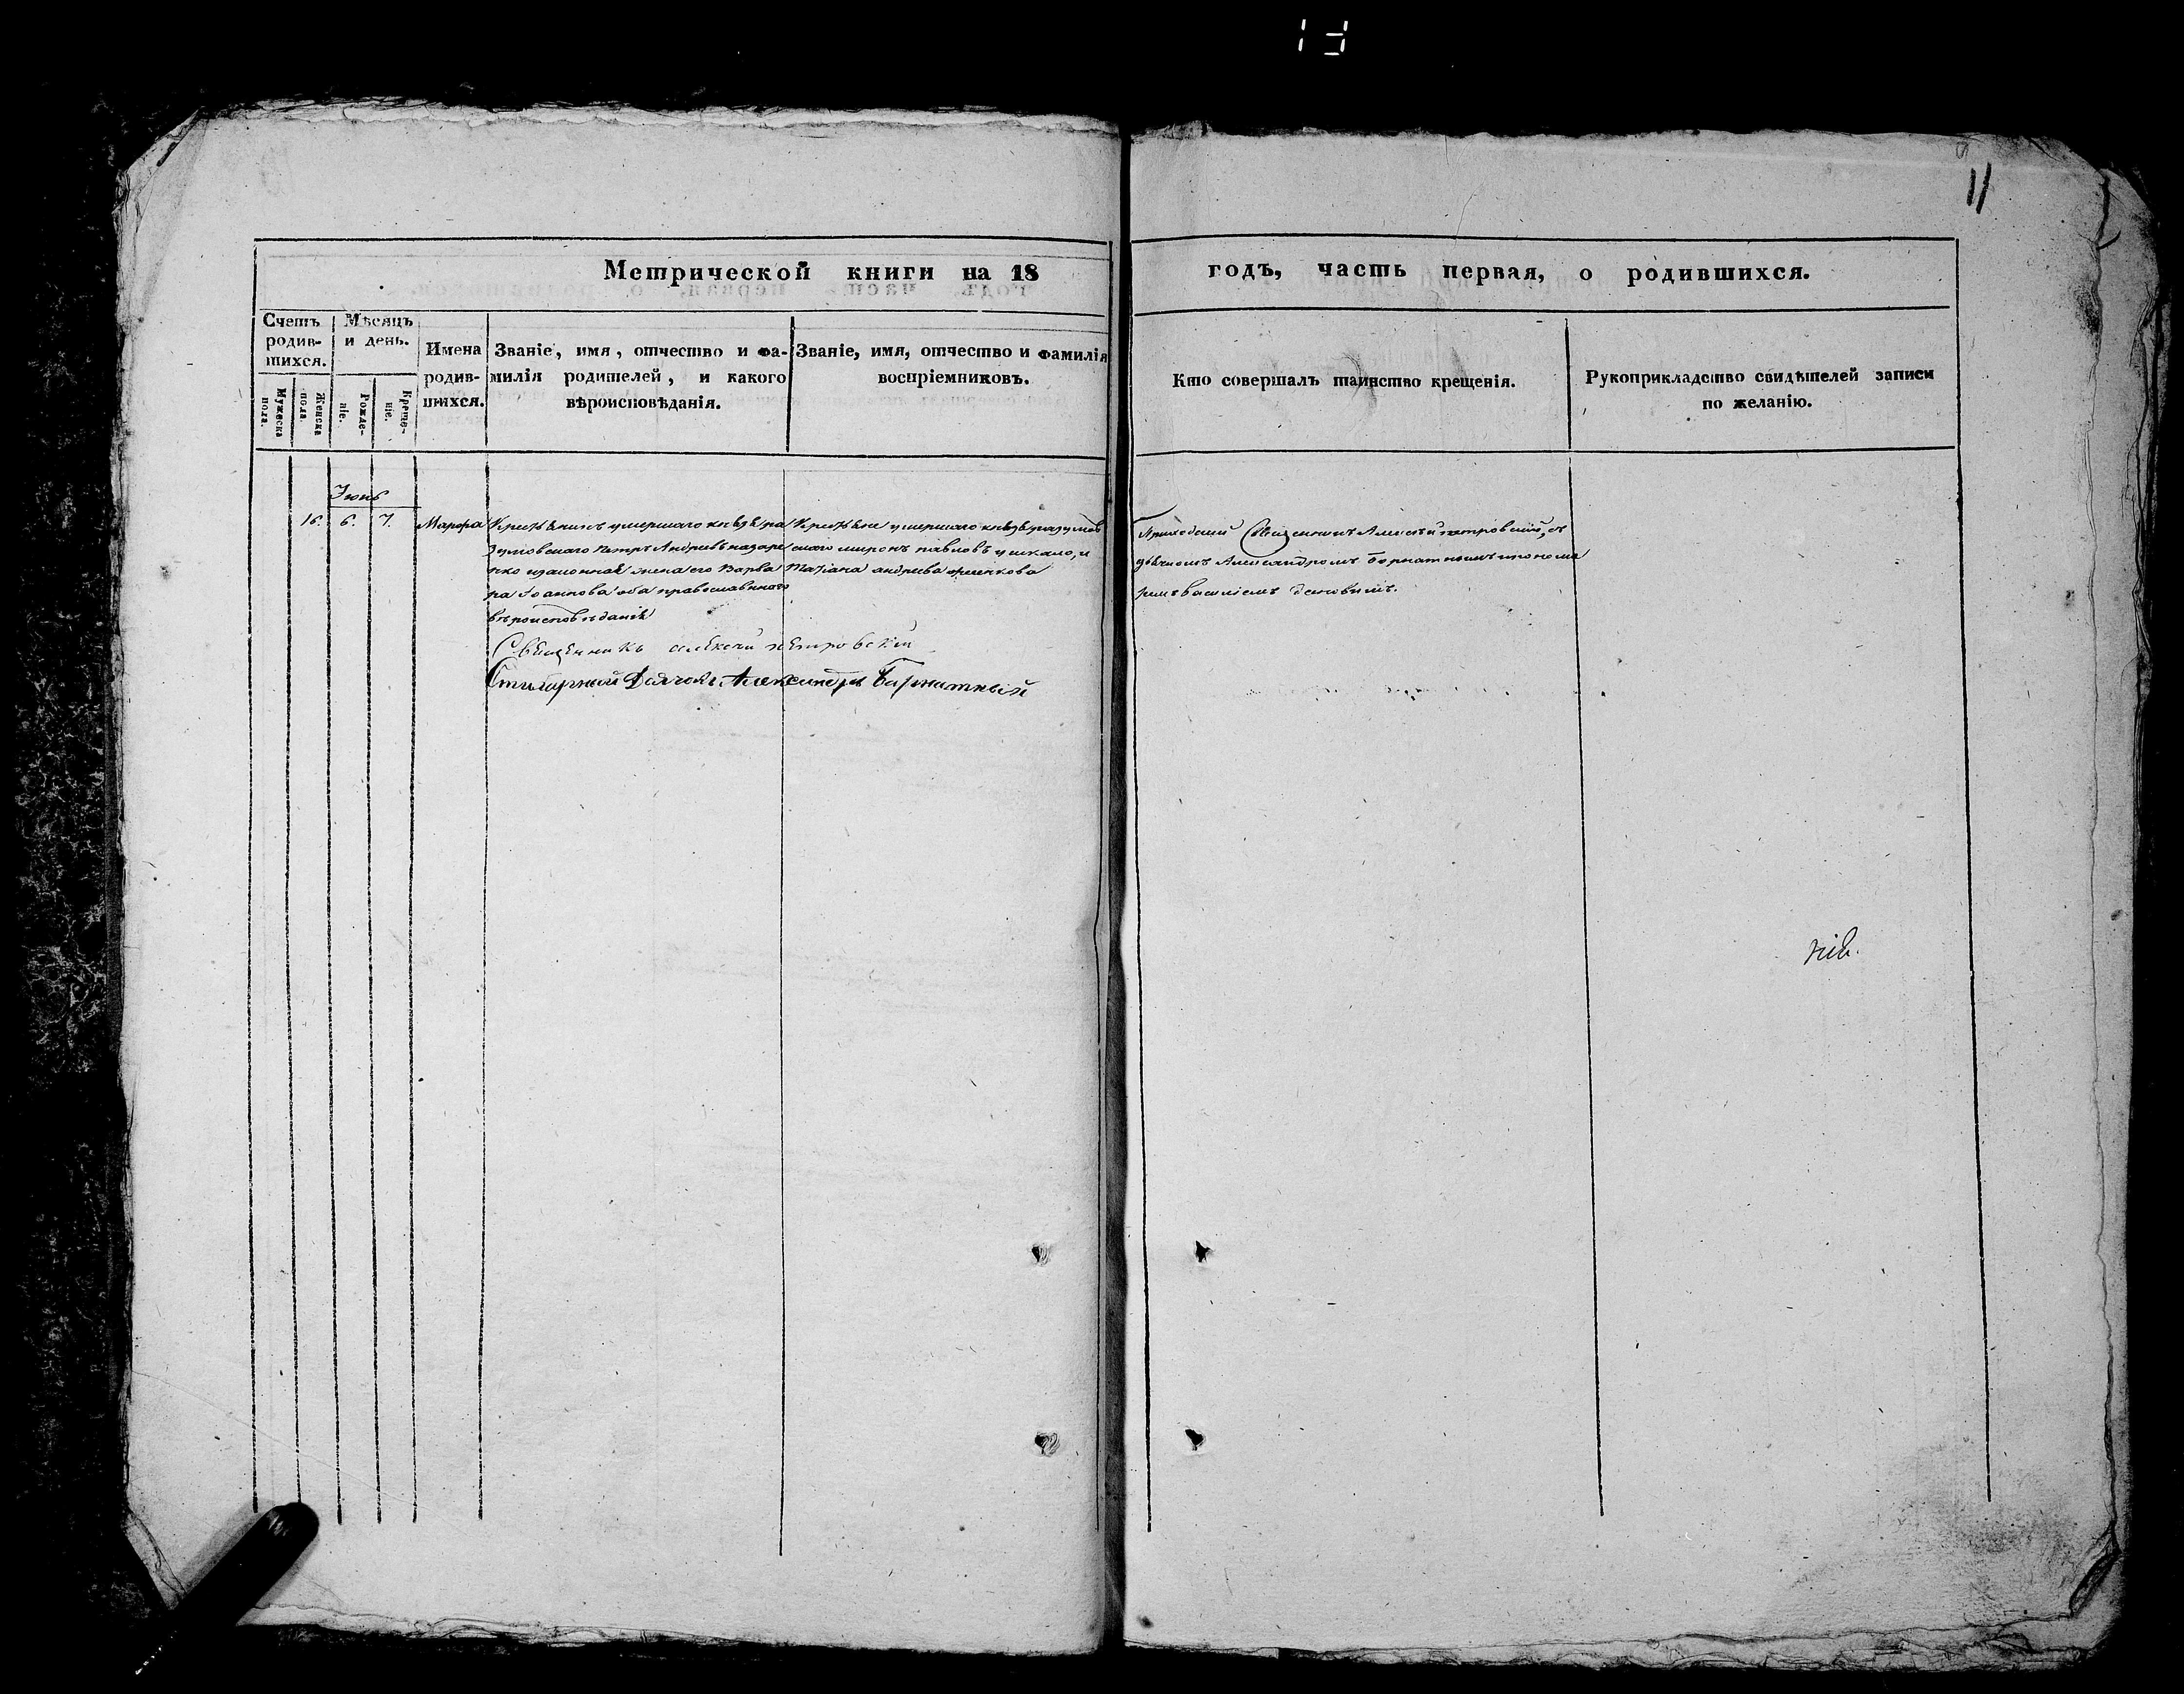 11
Метрической книги на 18 годъ, часть первая, о родившихся.
Счетъ родив- шихся.
Мужеска пола.
Женска пола.
Мѣсяцъ и день.
Рожде- ніе.
Креще- ніе.
Имена
родив-
шихся.
Званіе, имя, отчество и фа-
милія родителей, и какого
вѣроисповѣданія.
Званіе, имя, отчество и фамилія
воспріемниковъ.
Кто совершалъ таинство крещенія.
Рукоприкладство свидѣтелей записи
по желанію.
Іюнь
16. 6. 7. Марфа
умершаго князя ра
зумовскаго Петръ Андреевъ назаре
нко жена его Варва
ра Іоаннова оба православнаго
вѣроисповѣданія
умершаго князя разумов
скаго миронъ павловъ и
Татіана андреева
Приходскій Священникъ Алексѣй петровскій, съ
дьячкомъ Александромъ Барматнымъ и понома
ремъ василіемъ
Священникъ алексей петровский
Дьячокъ Александръ Барматный